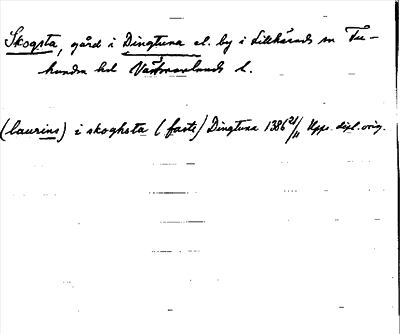 Skogsta, gård i Dingtuna el. by i Lillhärads sn Tu-
hundra hd Västmanlands l.
(laurins) i skoghsta (faste) Dingtuna 1386 2/11 Upps. dipl. orig.